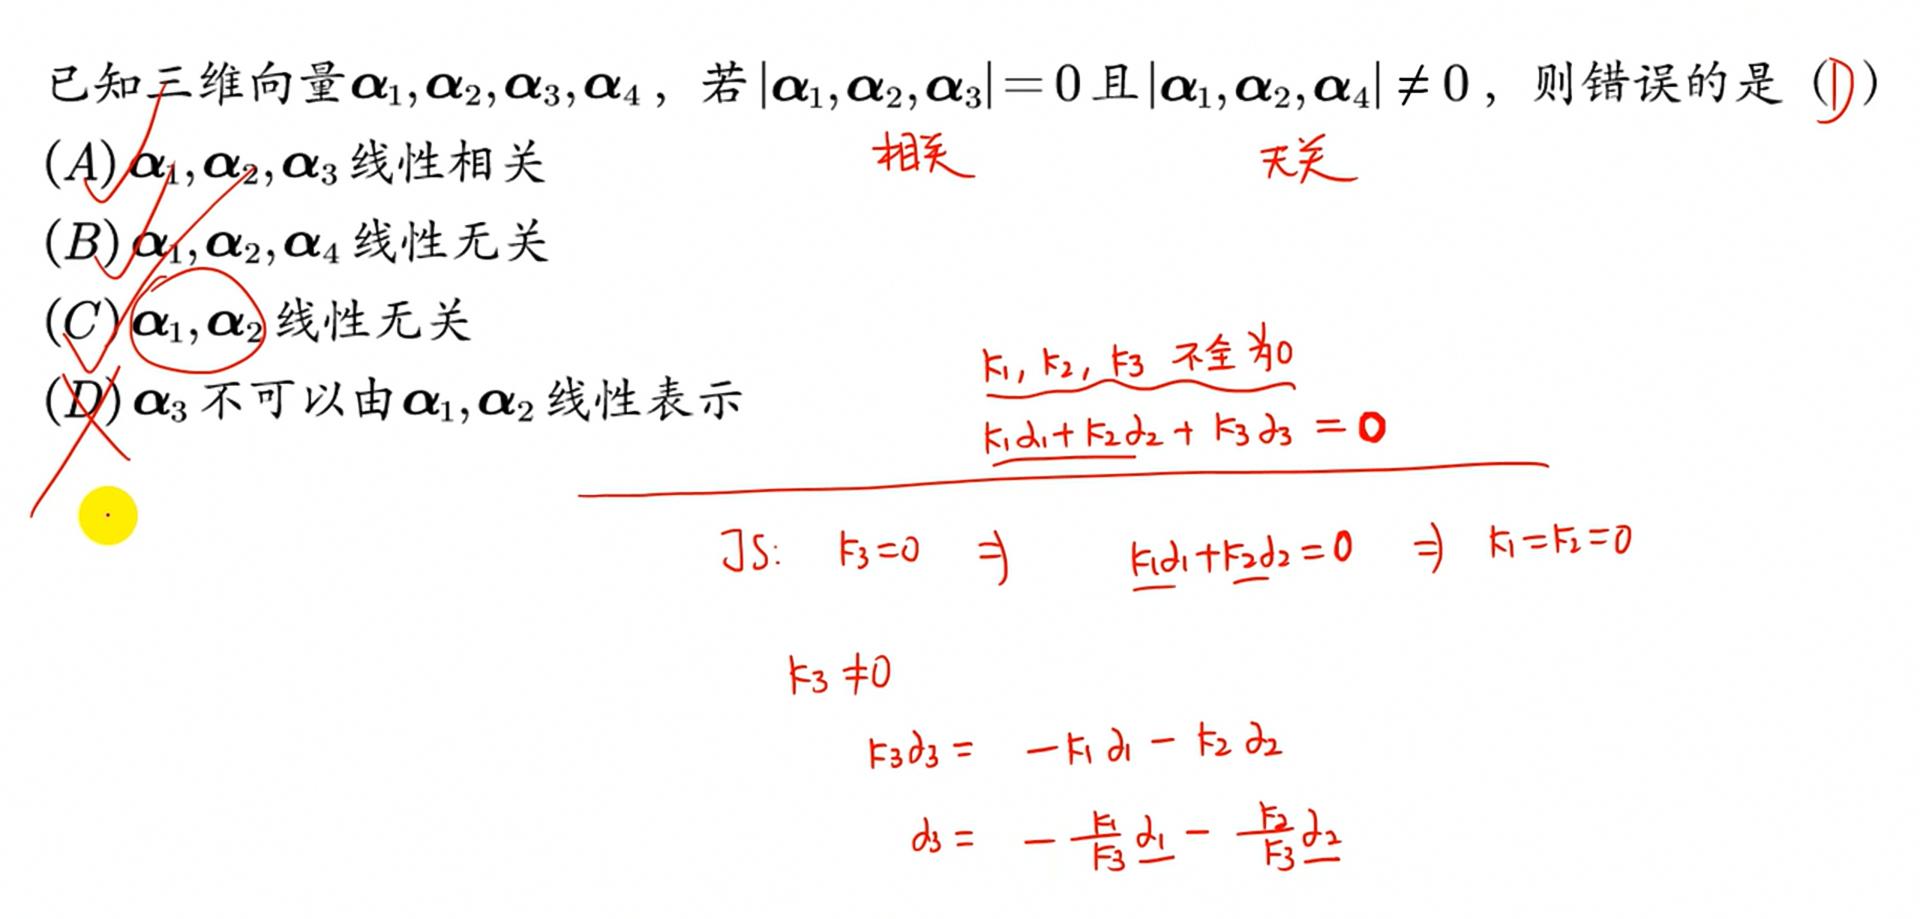 已知三维向量α₁,α₂,α₃,α₄，若|α₁,α₂,α₃|=0且|α₁,α₂,α₄|≠0，则错误的是（D）
相关 无关
(A) α₁,α₂,α₃线性相关
(B) α₁,α₂,α₄线性无关
(C) α₁,α₂线性无关
(D) α₃不可以由α₁,α₂线性表示
k₁, k₂, k₃ 不全为0
k₁α₁+k₂α₂+k₃α₃=0
JS: k₃=0 ⇒ k₁α₁+k₂α₂=0 ⇒ k₁=k₂=0
k₃≠0
k₃α₃= -k₁α₁-k₂α₂
α₃= -k₁/k₃ α₁ - k₂/k₃ α₂